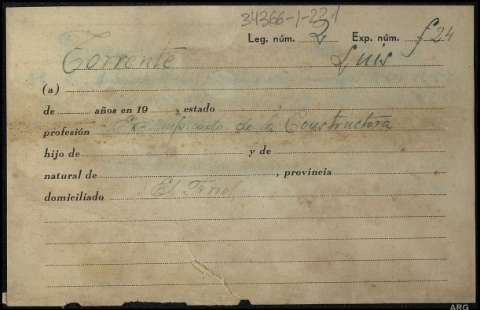 34366-1-224
Leg. núm. 2 Exp. núm. f 24
Torrente Luis
(a)
de años en 19 , estado
profesión Ex-empleado de la Constructora
hijo de y de
natural de , provincia
domiciliado El Ferrol
ARG